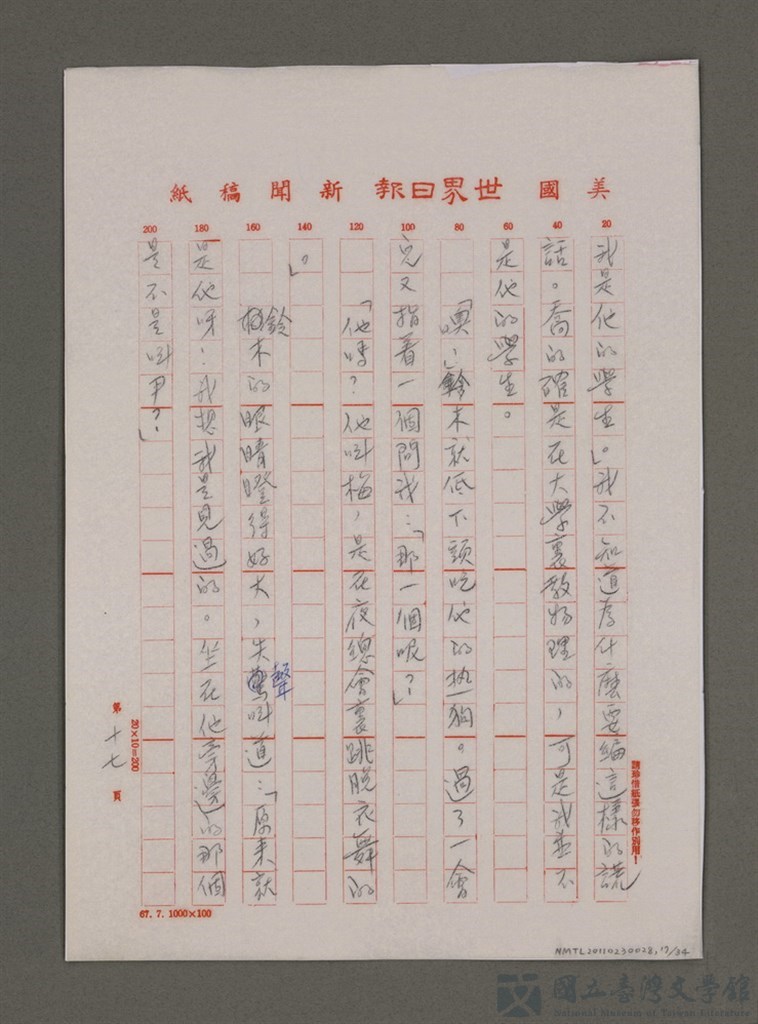 美國世界日報新聞稿紙
20
40
60
80
100
120
140
160
180
200
我是他的學生」。我不知道為什麼要編這樣的謊
話。喬的確是在大學裏教物理的，可是我並不
是他的學生。
「噢，」鈴木就低下頭吃他的热狗。過了一會
兒又指着一個問我：「那一個呢？」
「他嗎？他叫梅，是在夜總會裏跳脫衣舞的
。」
鈴木的眼睛瞪得好大，失聲叫道：「原來就
是他呀！我想我是見過的。坐在他旁邊的那個
是不是叫尹？」
請珍惜紙張勿移作別用！
20×10=200
第十七頁
67. 7. 1000×100
NMTL20110230028, 17/34
國立臺灣文學館
National Museum of Taiwan Literature